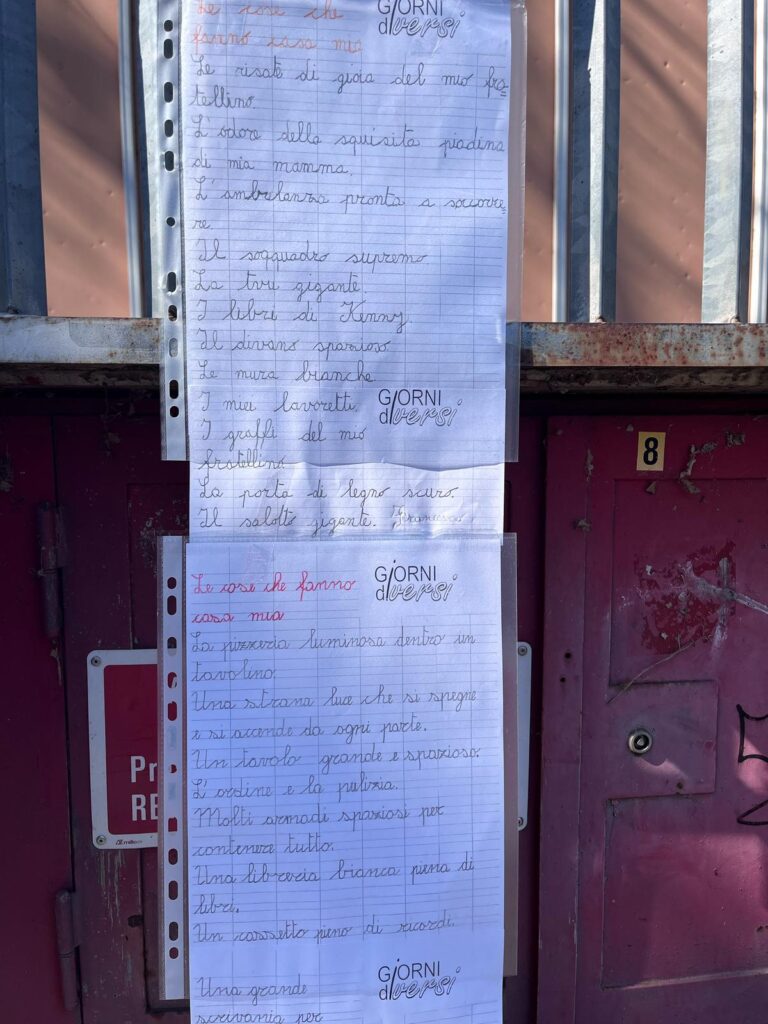 Le cose che
fanno casa mia
GiORNI
diversi
Le risate di gioia del mio fra=
tellino.
L'odore della squisita piadina
di mia mamma.
L'ambulanza pronta a soccorre=
re.
Il soqquadro supremo
La tivù gigante.
I libri di Kenny.
Il divano spazioso
Le mura bianche
I miei lavoretti.
GiORNI
diversi
I graffi del mio
fratellino
La porta di legno scuro.
Il salotto gigante. Francesco
8
Le cose che fanno
casa mia
GiORNI
diversi
La pizzeria luminosa dentro un
tavolino.
Una strana luce che si spegne
e si accende da ogni parte.
Un tavolo grande e spazioso.
L'ordine e la pulizia.
Molti armadi spaziosi per
contenere tutto.
Una libreria bianca piena di
libri.
Un cassetto pieno di ricordi.
Una grande
scrivania per
GiORNI
diversi
Pr
RE